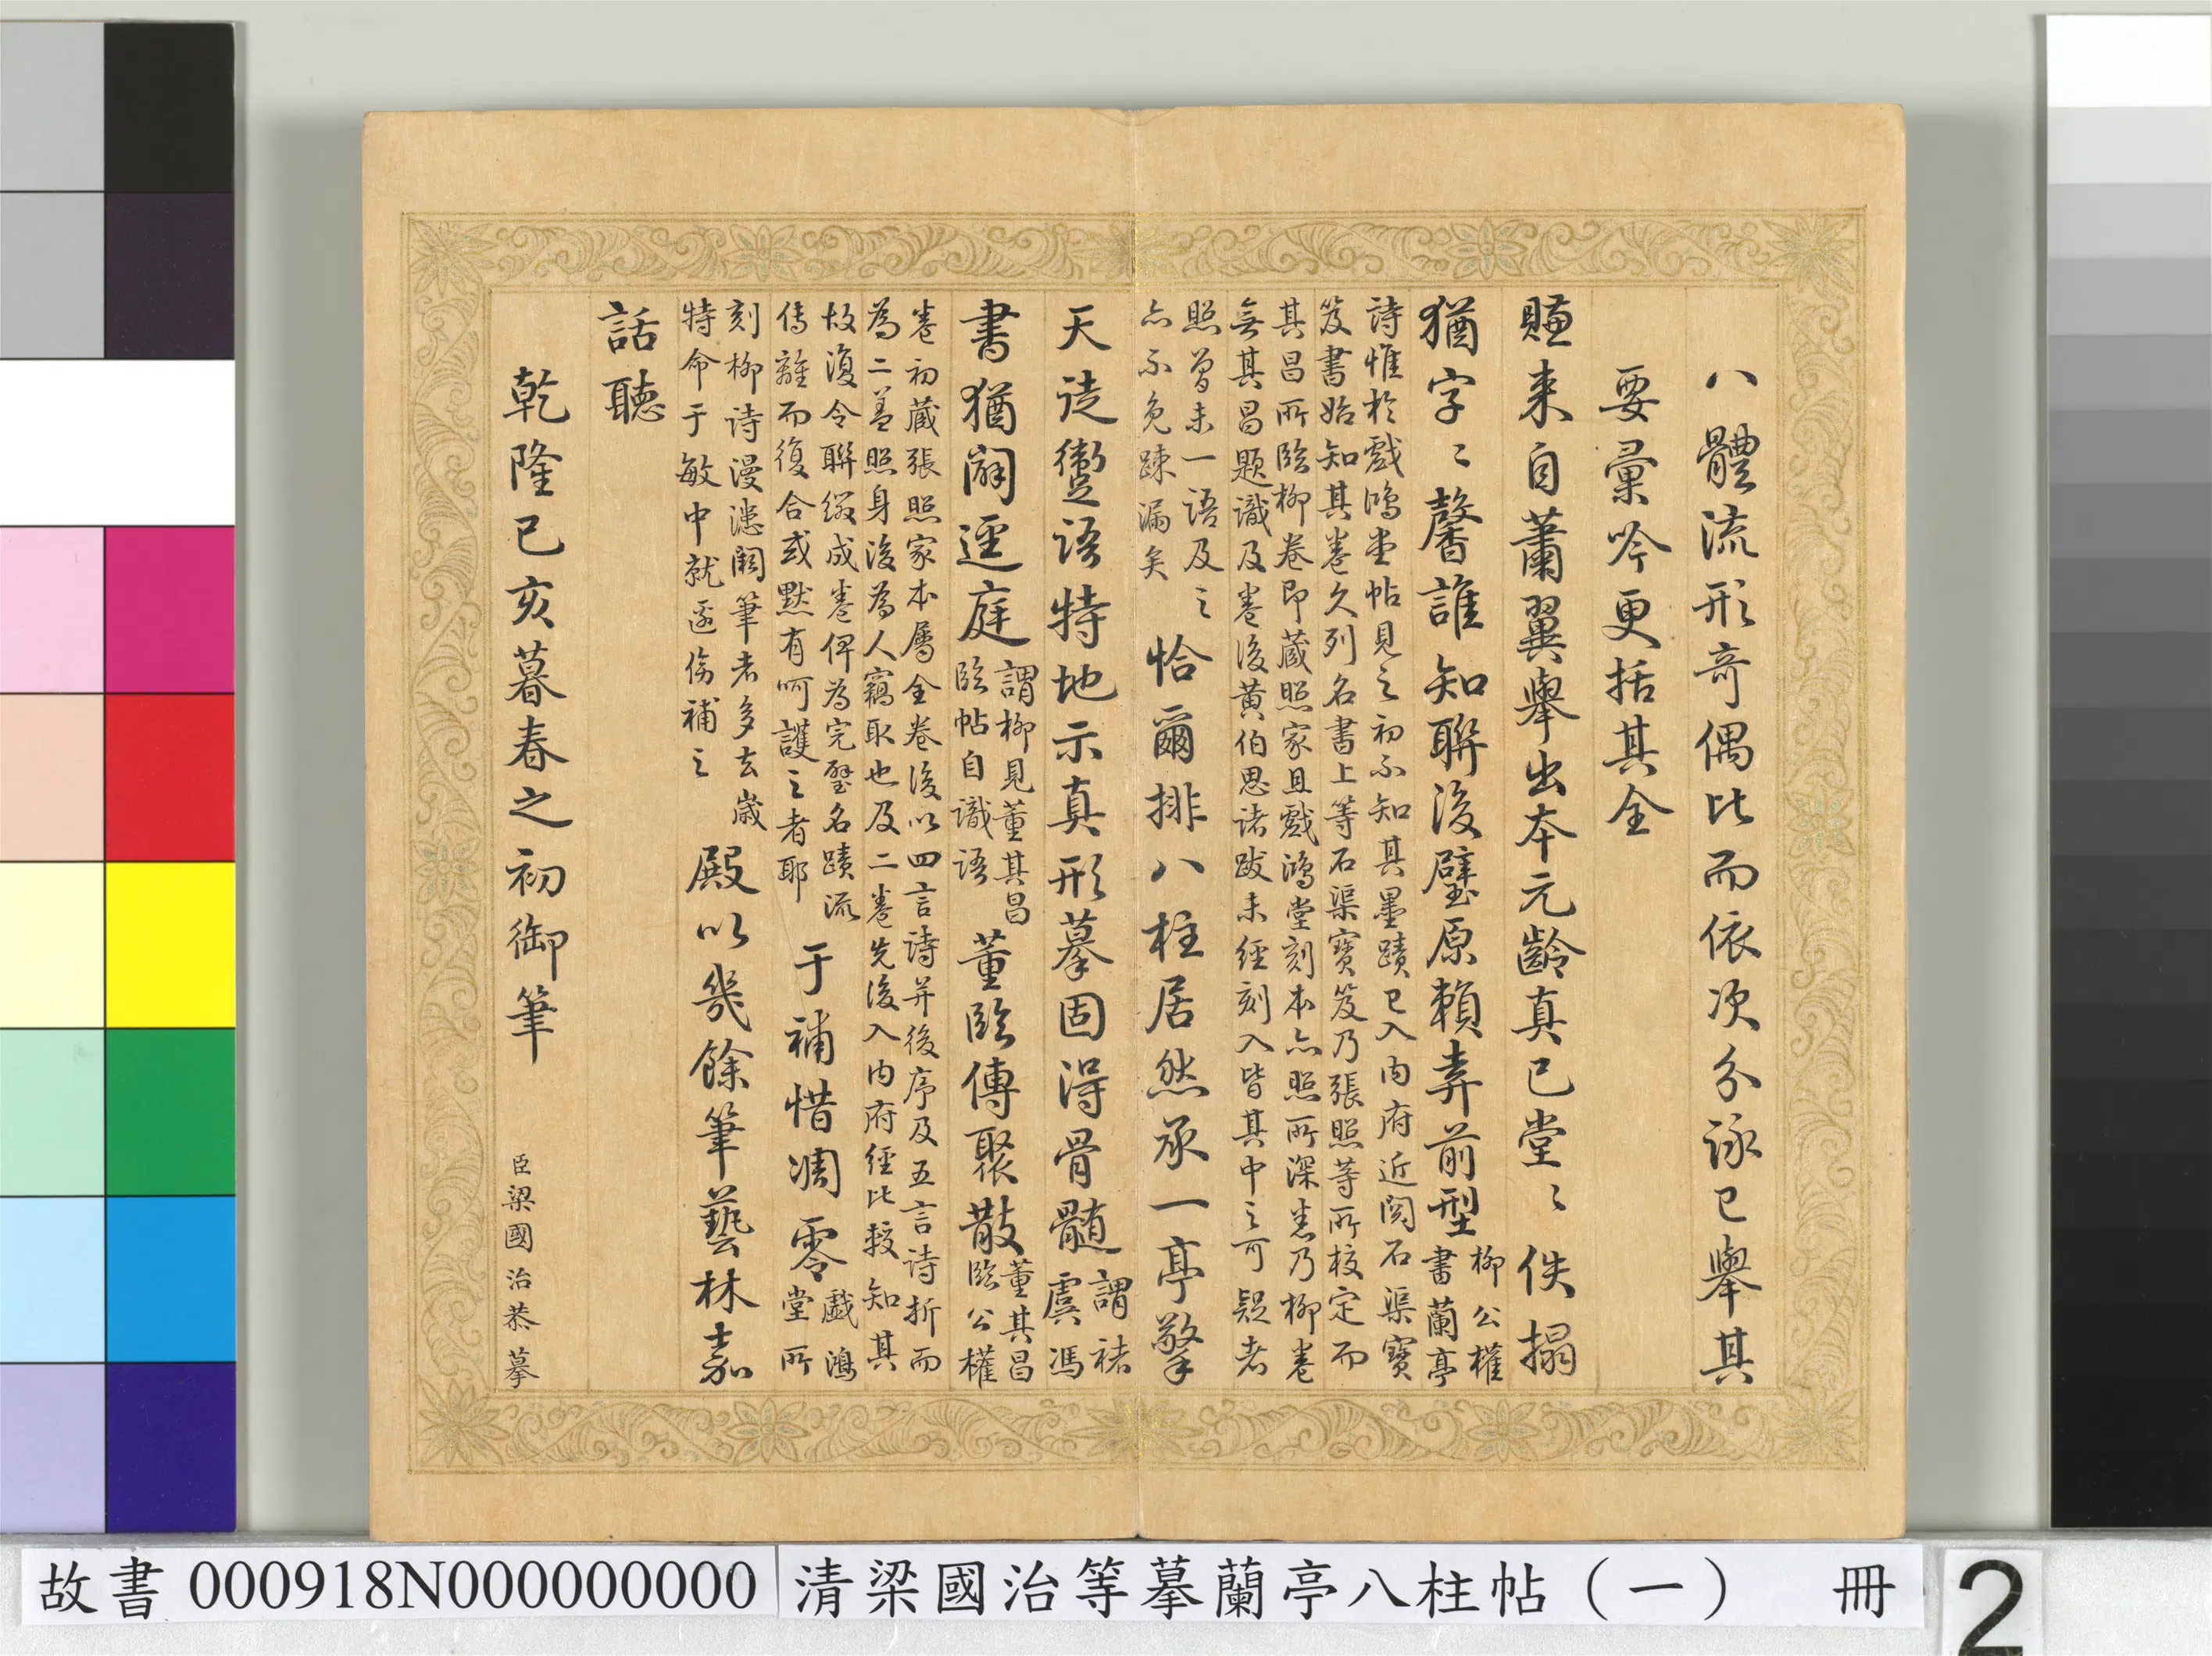 八體流形奇偶比而依次分詠已舉其
要彙吟更括其全
賺来自蕭翼舉出本元齡真已堂〻佚搨
猶字〻馨誰知聯後璧原賴弆前型
柳公權
書蘭亭
詩惟於戲鴻堂帖見之初不知其墨蹟已入内府近閱石渠寶
笈書始知其卷久列名書上等石渠寶笈乃張照等所校定而
其昌所臨柳卷即藏照家且戲鴻堂刻本亦照所深悉乃柳卷
無其昌題識及卷後黄伯思諸跋未經刻入皆其中之可疑者
照曽未一語及之
亦不免踈漏矣
恰爾排八柱居然承一亭擎
天徒躗語特地示真形摹固得骨髓
謂褚
虞馮
書猶闢逕庭
謂柳見董其昌
臨帖自識語
董臨傳聚散
董其昌
臨公權
卷初藏張照家本屬全卷後以四言詩并後序及五言詩折而
為二盖照身後為人竊取也及二卷先後入内府經比較知其
故復令聯綴成卷俾為完璧名蹟流
傳離而復合或默有呵護之者耶
于補惜凋零
戲鴻
堂所
刻柳詩漫漶闕筆者多去歲
特命于敏中就邊傍補之
殿以幾餘筆藝林嘉
話聽
乾隆己亥暮春之初御筆
臣梁國治恭摹
故書000918N000000000
清梁國治等摹蘭亭八柱帖（一） 冊
2